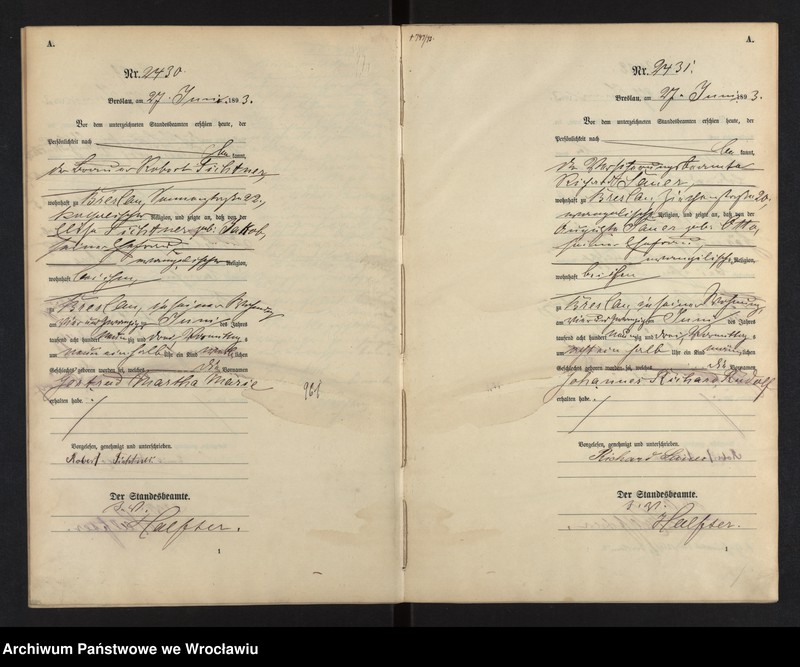 A.
Nr. 2430.
Breslau, am 27. Juni 1893.
Vor dem unterzeichneten Standesbeamten erschien heute, der
Persönlichkeit nach
be kannt,
der Brauer Robert Fichtner
wohnhaft zu Breslau,
katholischer Religion, und zeigte an, daß von der
Elise Fichtner geb. Jakob,
seiner Ehefrau
evangelischer Religion,
wohnhaft bei ihm,
zu Breslau, in seiner Wohnung
am vier und zwanzigsten Juni des Jahres
tausend acht hundert neunzig und drei Vormittags
um neun ein halb Uhr ein Kind weiblichen
Geschlechts geboren worden sei, welches die Vornamen
Gertrud Martha Marie
erhalten habe.
Vorgelesen, genehmigt und unterschrieben.
Robert Fichtner
Der Standesbeamte.
I. V.
Halfter.
1
961
A.
Nr. 2431.
Breslau, am 27. Juni 1893.
Vor dem unterzeichneten Standesbeamten erschien heute, der
Persönlichkeit nach
be kannt,
der
Richard Sauer
wohnhaft zu Breslau, 20,
evangelischer Religion, und zeigte an, daß von der
Auguste Sauer geb. Otto,
seiner Ehefrau,
evangelischer Religion,
wohnhaft bei ihm
zu Breslau, in seiner Wohnung,
am vier und zwanzigsten Juni des Jahres
tausend acht hundert neunzig und drei Vormittags
um ein halb Uhr ein Kind männlichen
Geschlechts geboren worden sei, welches die Vornamen
Johannes Richard Rudolf
erhalten habe.
Vorgelesen, genehmigt und unterschrieben.
Richard Sauer
Der Standesbeamte.
I. V.
Halfter.
1
Archiwum Państwowe we Wrocławiu